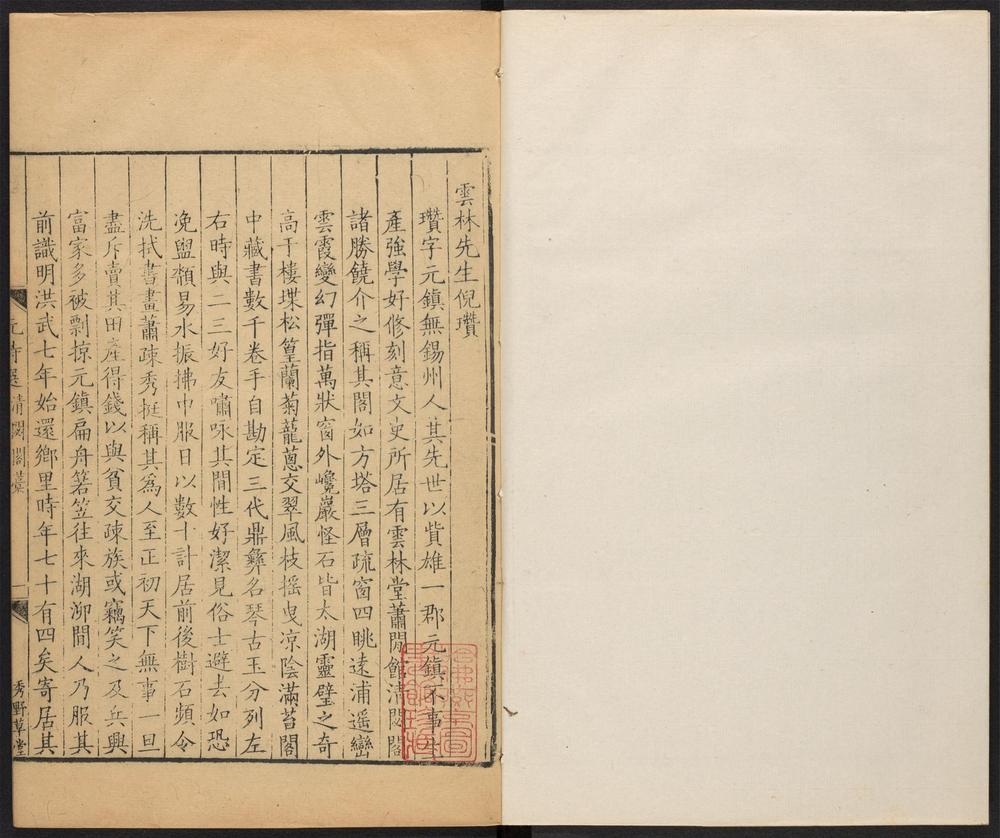 雲林先生倪瓚
瓚字元鎮無錫州人其先世以貲雄一郡元鎮不事生
產強學好修刻意文史所居有雲林堂蕭閒館清閟閣
諸勝饒介之稱其閣如方塔三層疏窗四眺遠浦遥巒
雲霞變幻彈指萬狀窗外巉巖怪石皆太湖靈璧之奇
高于樓堞松篁蘭菊蘢蔥交翠風枝摇曳凉陰滿苔閣
中藏書數千卷手自勘定三代鼎彝名琴古玉分列左
右時與二三好友嘯咏其間性好潔見俗士避去如恐
浼盥頮易水振拂巾服日以數十計居前後樹石頻令
洗拭書畫蕭疎秀挺稱其爲人至正初天下無事一旦
盡斥賣其田產得錢以與貧交疎族或竊笑之及兵興
富家多被剽掠元鎮扁舟箬笠往來湖泖間人乃服其
前識明洪武七年始還鄉里時年七十有四矣寄居其
元詩選 清閟閣藁 一 秀野草堂